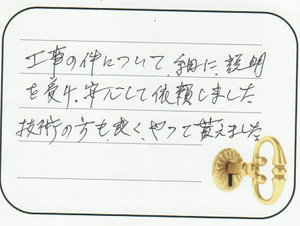 工事の件について、事細に、説明
を受け、安心して依頼しました
技術の方も、良く、やって貰えました。